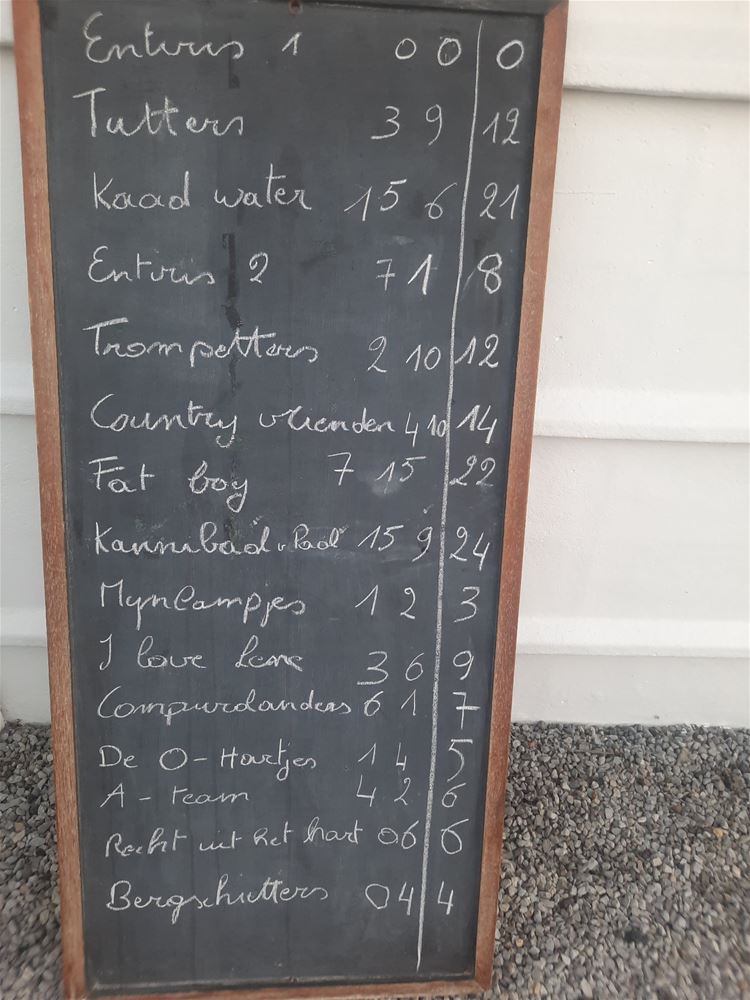 Enturis 1 0 0 0
Tutters 3 9 12
Kaad water 15 6 21
Enturis 2 7 1 8
Trompetters 2 10 12
Country vrienden 4 10 14
Fat boy 7 15 22
Kannibad v Paol 15 9 24
Mynlampjes 1 2 3
I love Lene 3 6 9
Compurdanders 6 1 7
De O-Hartjes 1 4 5
A-team 4 2 6
Recht uit het hart 0 6 6
Bergschutters 0 4 4